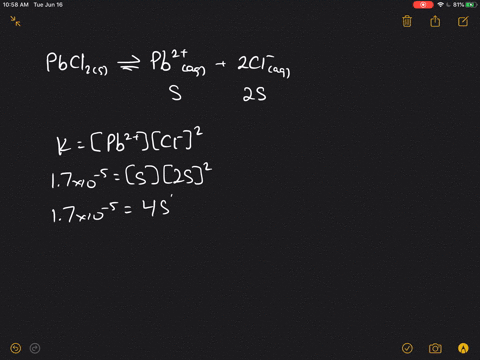 10:58 AM Tue Jun 16
81%
PbCl₂(s) ⇌ Pb²⁺(aq) + 2Cl⁻(aq)
S 2S
K = [Pb²⁺][Cl⁻]²
1.7x10⁻⁵ = [S][2S]²
1.7x10⁻⁵ = 4S